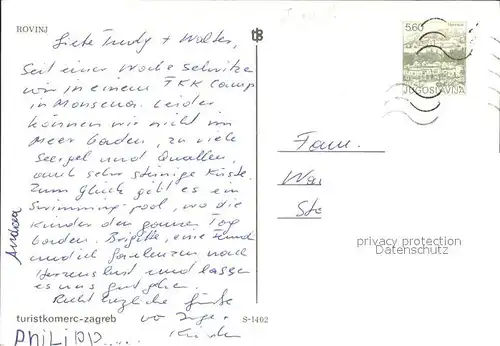 ROVINJ
Liebe Trudy + Walter,
Seit einer Woche schwitzen
wir in einem FKK Camp
in Monsena. Leider
können wir nicht im
Meer baden, zu viele
Seeigel und Quallen,
auch sehr steinige Küste.
Zum Glück gibt es ein
Swimming-pool, wo die
Kinder den ganzen Tag
baden. Brigitte, eine Freund
und ich faulenzen nach
Herzenslust und lassen
es uns gut gehen.
Recht herzliche Grüsse
von Inge
Andrea
PHILIPP.....
turistkomerc-zagreb
S-1402
tB
5.60
JUGOSLAVIJA
Fam.
Wa
St
privacy protection
Datenschutz